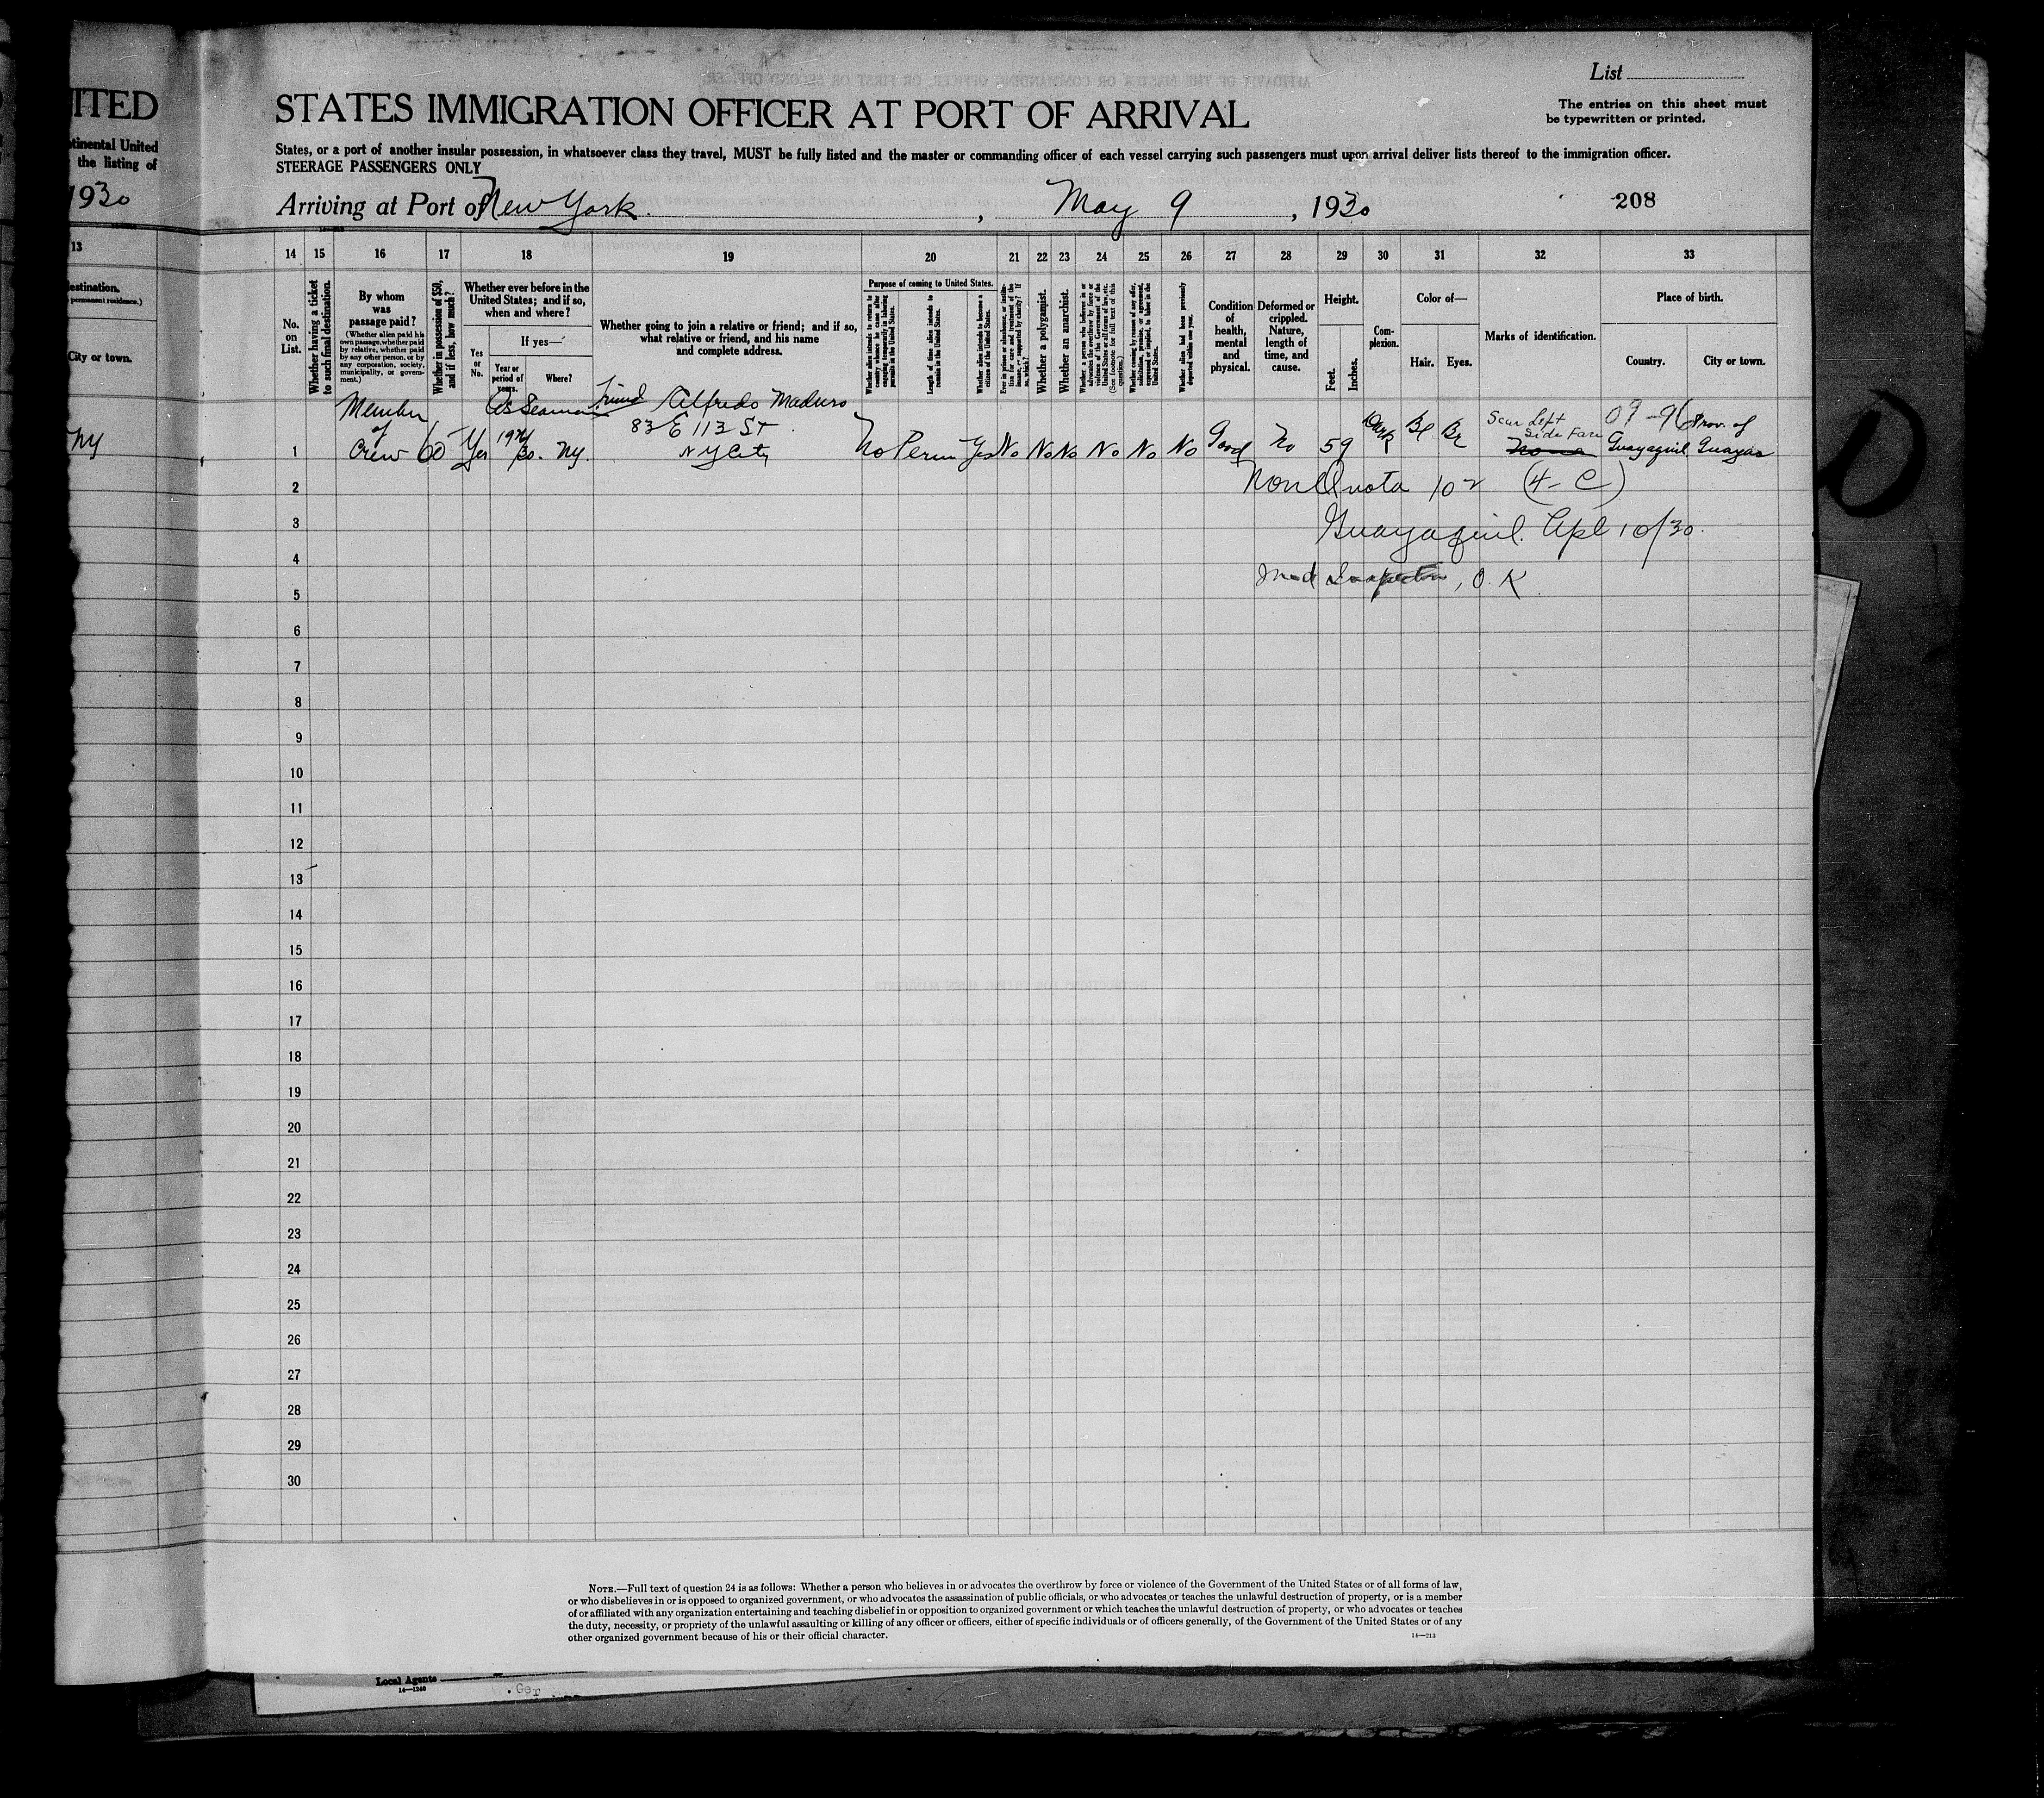 ITED
tinental United
the listing of
1930
13
estination.
permanent residence.)
City or town.
NY
List
STATES IMMIGRATION OFFICER AT PORT OF ARRIVAL
The entries on this sheet must
be typewritten or printed.
States, or a port of another insular possession, in whatsoever class they travel, MUST be fully listed and the master or commanding officer of each vessel carrying such passengers must upon arrival deliver lists thereof to the immigration officer.
STEERAGE PASSENGERS ONLY
Arriving at Port of New York. , May 9 , 1930
208
14 15 16 17 18 19 20 21 22 23 24 25 26 27 28 29 30 31 32 33
No. on List.
Whether having a ticket to such final destination.
By whom was passage paid?
(Whether alien paid his own passage, whether paid by relative, whether paid by any other person, or by any corporation, society, municipality, or government.)
Whether in possession of $50, and if less, how much?
Whether ever before in the United States; and if so, when and where?
Yes or No.
If yes—
Year or period of years.
Where?
Whether going to join a relative or friend; and if so, what relative or friend, and his name and complete address.
Purpose of coming to United States.
Whether alien intends to return to country whence he came after engaging temporarily in laboring pursuits in the United States.
Length of time alien intends to remain in the United States.
Whether alien intends to become a citizen of the United States.
Ever in prison or almshouse, or institution for care and treatment of the insane, or supported by charity? If so, which?
Whether a polygamist.
Whether an anarchist.
Whether a person who believes in or advocates the overthrow by force or violence of the Government of the United States or all forms of law, etc. (See footnote for full text of this question.)
Whether coming by reason of any offer, solicitation, promise, or agreement, expressed or implied, to labor in the United States.
Whether alien had been previously deported within one year.
Condition of health, mental and physical.
Deformed or crippled. Nature, length of time, and cause.
Height.
Feet.
Inches.
Complexion.
Color of—
Hair.
Eyes.
Marks of identification.
Place of birth.
Country.
City or town.
Member of Crew 60 Yes As Seaman NY.
Friend Alfredo Maduro
83 E 113 St.
N Y City
No Perm Yes No No No No No No Good No 5 9 Dark Bl Br
Scar Left Side Face
Guayaquil Prov. of Guayas
Non Quota 102 (4-C)
Guayaquil. Apl 10/30.
Med Inspection, O.K
1
2
3
4
5
6
7
8
9
10
11
12
13
14
15
16
17
18
19
20
21
22
23
24
25
26
27
28
29
30
NOTE.—Full text of question 24 is as follows: Whether a person who believes in or advocates the overthrow by force or violence of the Government of the United States or of all forms of law,
or who disbelieves in or is opposed to organized government, or who advocates the assassination of public officials, or who advocates or teaches the unlawful destruction of property, or is a member
of or affiliated with any organization entertaining and teaching disbelief in or opposition to organized government or which teaches the unlawful destruction of property, or who advocates or teaches
the duty, necessity, or propriety of the unlawful assaulting or killing of any officer or officers, either of specific individuals or of officers generally, of the Government of the United States or of any
other organized government because of his or their official character.
14—213
Local Agents
14—1240